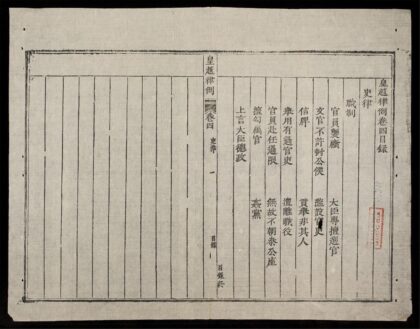 皇越律例卷四目錄
吏律
職制
官員襲廕　大臣專擅選官
文官不許封公侯　濫設官吏
信牌　貢舉非其人
舉用有過官吏　擅離職役
官員赴任過限　無故不朝參公座
擅勾屬官　姦黨
上言大臣德政
皇越律例　卷四　吏律　一　目錄
目錄終